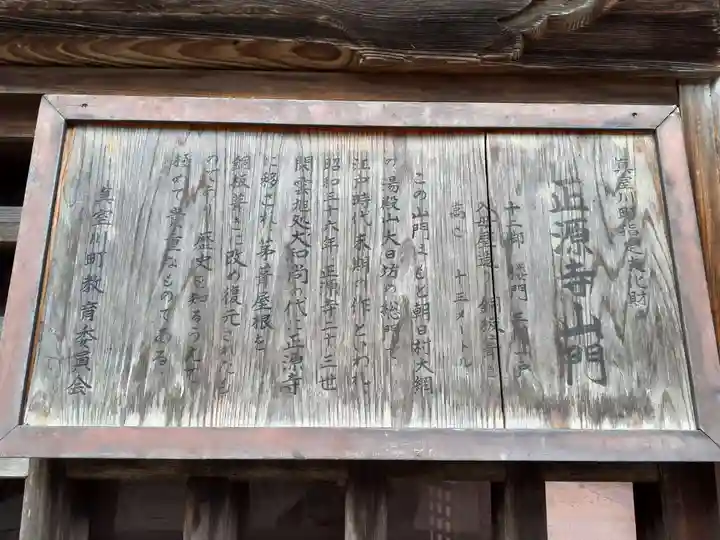 真室川町指定文化財
正源寺山門
十二脚 楼門 三間一戸
入母屋造 銅板葺き
高さ 十三メートル
この山門はもと朝日村大網
の湯殿山大日坊の総門で
江戸時代末期の作といわれ
昭和三十六年正源寺二十三世
関雲旭処大和尚の代に正源寺
に移され 茅葺屋根を
銅板葺きに改め復元されたも
のです 歴史を知るうえで
極めて貴重なものである
真室川町教育委員会